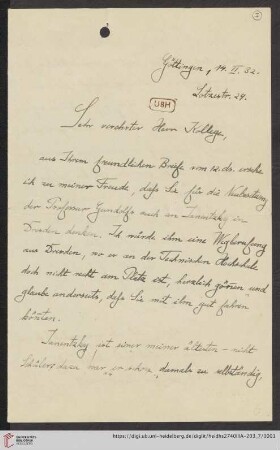 Göttingen, 14. II. 32.
Lotzestr. 29.
UBH
Sehr verehrter Herr Kollege,
aus Ihrem freundlichen Briefe vom 12. ds. ersehe
ich zu meiner Freude, daß Sie für die Neubesetzung
der Professur Gundolfs auch an Janentzky in
Dresden denken. Ich würde ihm eine Wegberufung
aus Dresden, wo er an der Technischen Hochschule
doch nicht recht am Platz ist, herzlich gönnen und
glaube andrerseits, daß Sie mit ihm gut fahren
könnten.
Janentzky ist einer meiner ältesten – nicht
Schüler, dazu war er schon damals zu selbständig,
https://digi.ub.uni-heidelberg.de/diglit/heidhs2740IIA-203_7/0001